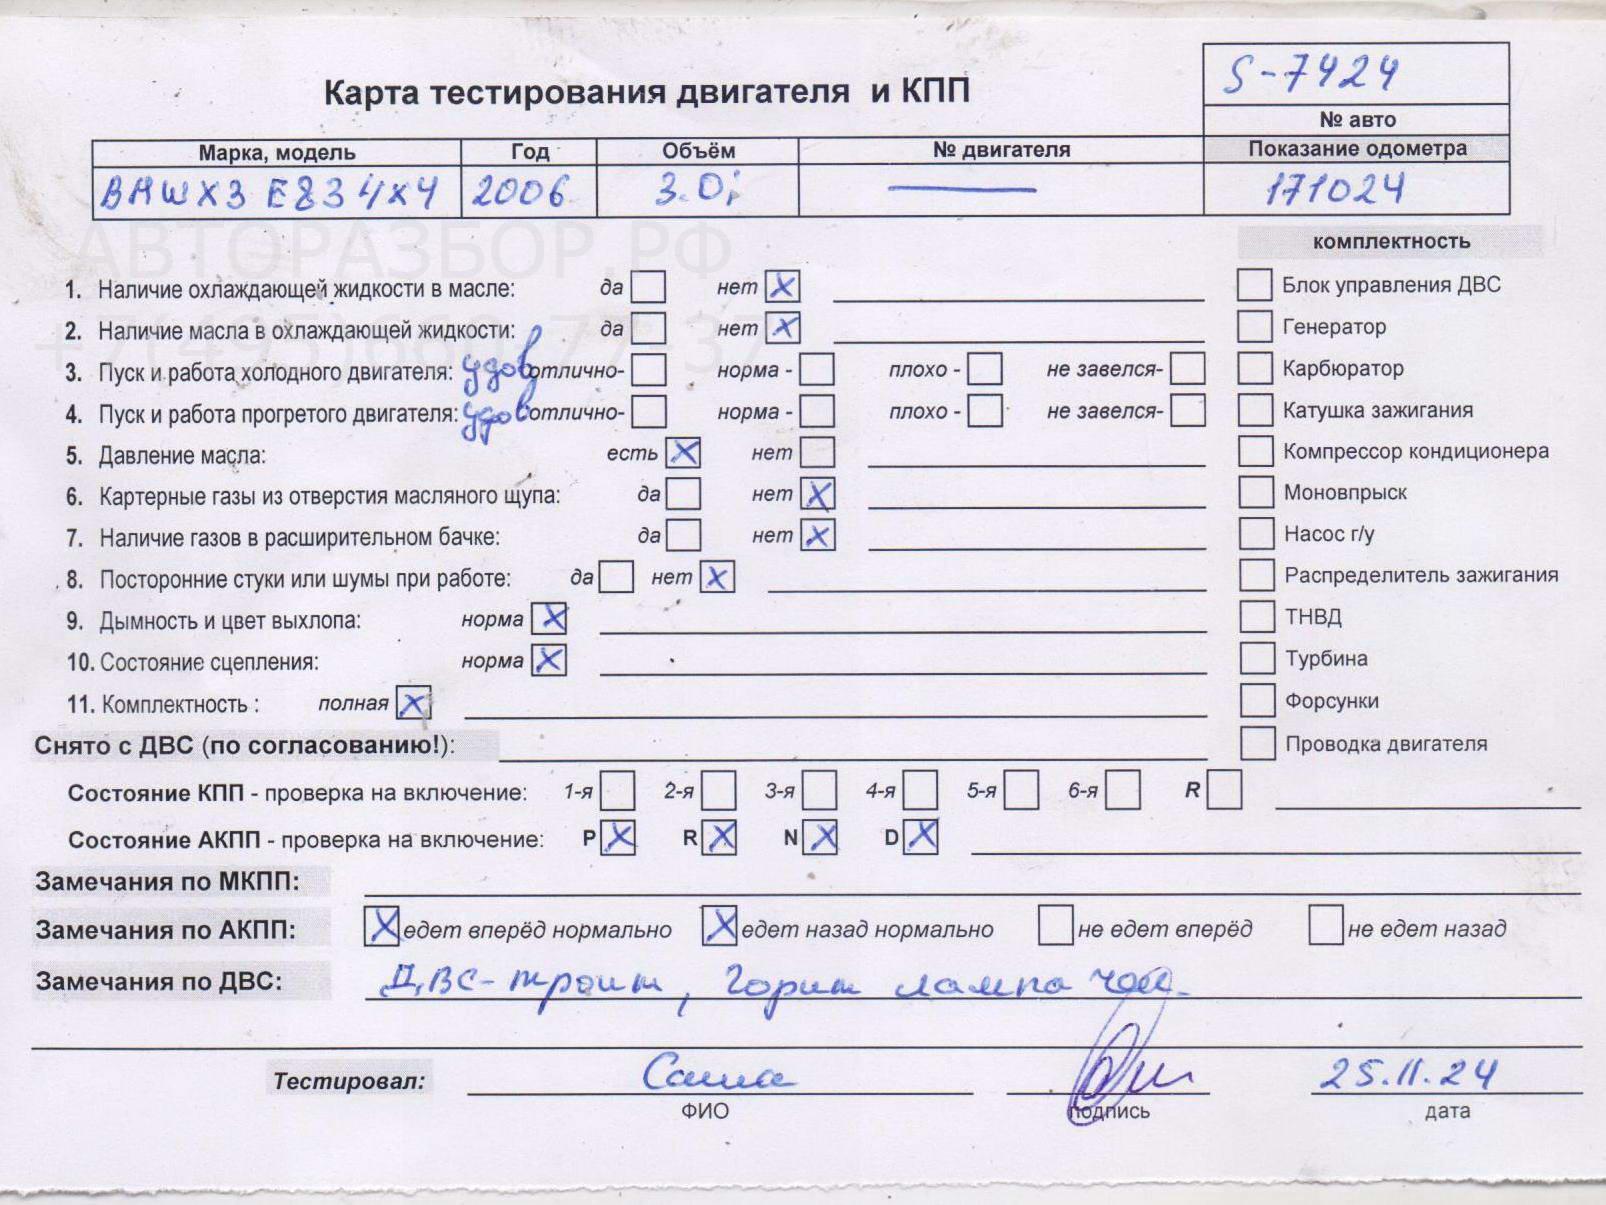 S-7424
Карта тестирования двигателя и КПП
№ авто
Марка, модель Год Объём № двигателя Показание одометра
BMW X3 E83 4x4 2006 3.0i — 171024
АВТОРАЗБОР.РФ
комплектность
1. Наличие охлаждающей жидкости в масле: да нет X Блок управления ДВС
2. Наличие масла в охлаждающей жидкости: да нет X Генератор
+7(495)660-77-37
3. Пуск и работа холодного двигателя: удов отлично- норма - плохо - не завелся- Карбюратор
4. Пуск и работа прогретого двигателя: удов отлично- норма - плохо - не завелся- Катушка зажигания
5. Давление масла: есть X нет Компрессор кондиционера
6. Картерные газы из отверстия масляного щупа: да нет X Моновпрыск
7. Наличие газов в расширительном бачке: да нет X Насос г/у
8. Посторонние стуки или шумы при работе: да нет X Распределитель зажигания
9. Дымность и цвет выхлопа: норма X ТНВД
10. Состояние сцепления: норма X Турбина
11. Комплектность : полная X Форсунки
Снято с ДВС (по согласованию!): Проводка двигателя
Состояние КПП - проверка на включение: 1-я 2-я 3-я 4-я 5-я 6-я R
Состояние АКПП - проверка на включение: P X R X N X D X
Замечания по МКПП:
Замечания по АКПП: X едет вперёд нормально X едет назад нормально не едет вперёд не едет назад
Замечания по ДВС: ДВС-троит, горит лампа
Тестировал: Саша 25.11.24
ФИО подпись дата